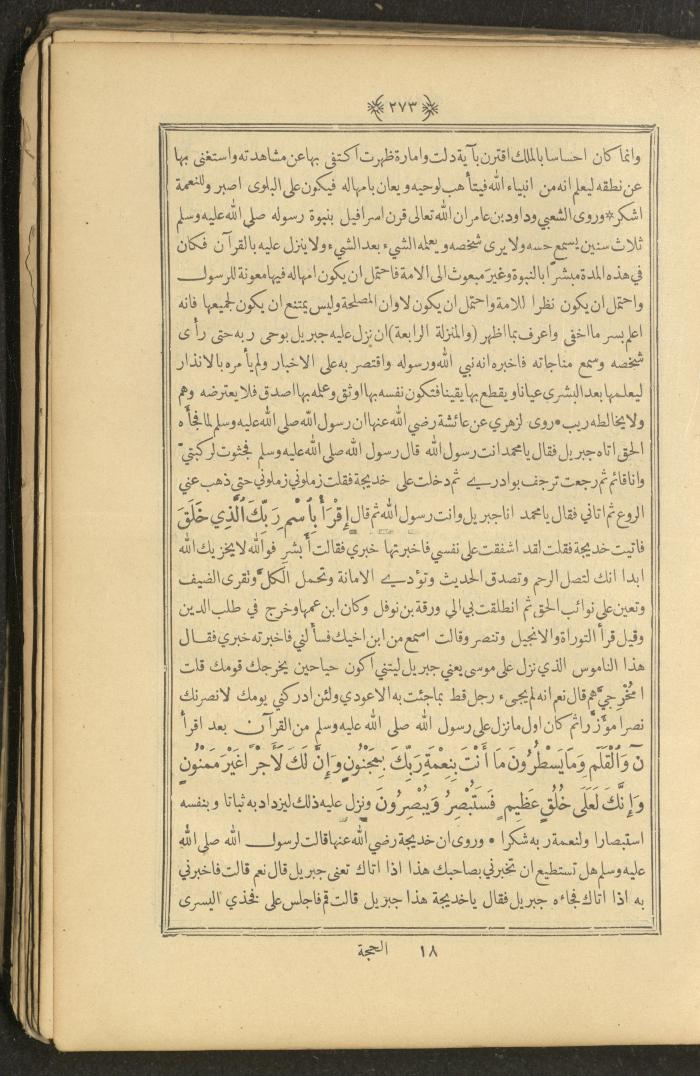 ٢٧٣
وانما كان احساسا بالملك اقترن بآية دلت وامارة ظهرت اكتفى بها عن مشاهدته واستغنى بها
عن نطقه ليعلم انه من انبياء الله فيتأهب لوحيه ويعان بامهاله فيكون على البلوى اصبر وللنعمة
اشكر * وروى الشعبي وداود بن عامر ان الله تعالى قرن اسرافيل بنبوة رسوله صلى الله عليه وسلم
ثلاث سنين يسمع حسه ولا يرى شخصه ويعلمه الشيء بعد الشيء ولا ينزل عليه بالقرآن فكان
في هذه المدة مبشرًا بالنبوة وغير مبعوث الى الامة فاحتمل ان يكون امهاله فيها معونة للرسول
واحتمل ان يكون نظرا للامة واحتمل ان يكون لاوان المصلحة وليس يمتنع ان يكون لجميعها فانه
اعلم بسر ما اخفى واعرف بما اظهر (والمنزلة الرابعة) ان نزل عليه جبريل بوحي ربه حتى رأى
شخصه وسمع مناجاته فاخبره انه نبي الله ورسوله واقتصر به على الاخبار ولم يأمره بالانذار
ليعلمها بعد البشرى عيانا ويقطع بها يقينا فتكون نفسه بها اوثق وعلمه بها اصدق فلا يعترضه وهم
ولا يخالطه ريب • روى لزهري عن عائشة رضي الله عنها ان رسول الله صلى الله عليه وسلم لما فجأه
الحق اتاه جبريل فقال يا محمد انت رسول الله قال رسول الله صلى الله عليه وسلم فجثوت لركبتيّ
وانا قائم ثم رجعت ترجف بوادري ثم دخلت على خديجة فقلت زملوني زملوني حتى ذهب عني
الروع ثم اتاني فقال يا محمد انا جبريل وانت رسول الله ثم قال إِقْرَأْ بِٱسْمِ رَبِّكَ الَّذِي خَلَقَ
فاتيت خديجة فقلت لقد اشفقت على نفسي فاخبرتها خبري فقالت أبشر فوالله لا يخزيك الله
ابدا انك لتصل الرحم وتصدق الحديث وتؤدي الامانة وتحمل الكلّ وتقرى الضيف
وتعين على نوائب الحق ثم انطلقت بي الى ورقة بن نوفل وكان ابن عمها وخرج في طلب الدين
وقيل قرأ التوراة والانجيل وتنصر وقالت اسمع من ابن اخيك فسألني فاخبرته خبري فقال
هذا الناموس الذي نزل على موسى يعني جبريل ليتني اكون حيا حين يخرجك قومك قلت
امُخْرِجيَّ هم قال نعم انه لم يجيء رجل قط بما جئت به الا عودي ولئن ادركني يومك لانصرنك
نصرا مؤزّرا ثم كان اول ما نزل على رسول الله صلى الله عليه وسلم من القرآن بعد اقرأ
نٓ وَٱلْقَلَمِ وَمَا يَسْطُرُونَ مَا أَنْتَ بِنِعْمَةِ رَبِّكَ بِمَجْنُونٍ وَإِنَّ لَكَ لَأَجْرًا غَيْرَ مَمْنُونٍ
وَإِنَّكَ لَعَلَى خُلُقٍ عَظِيمٍ فَسَتُبْصِرُ وَيُبْصِرُونَ ونزل عليه ذلك ليزداد به ثباتا وبنفسه
استبصارا ولنعمة ربه شكرا • وروى ان خديجة رضي الله عنها قالت لرسول الله صلى الله
عليه وسلم هل تستطيع ان تخبرني بصاحبك هذا اذا اتاك تعنى جبريل قال نعم قالت فاخبرني
به اذا اتاك فجاءه جبريل فقال ياخديجة هذا جبريل قالت قم فاجلس على فخذي اليسرى
١٨ الحجة